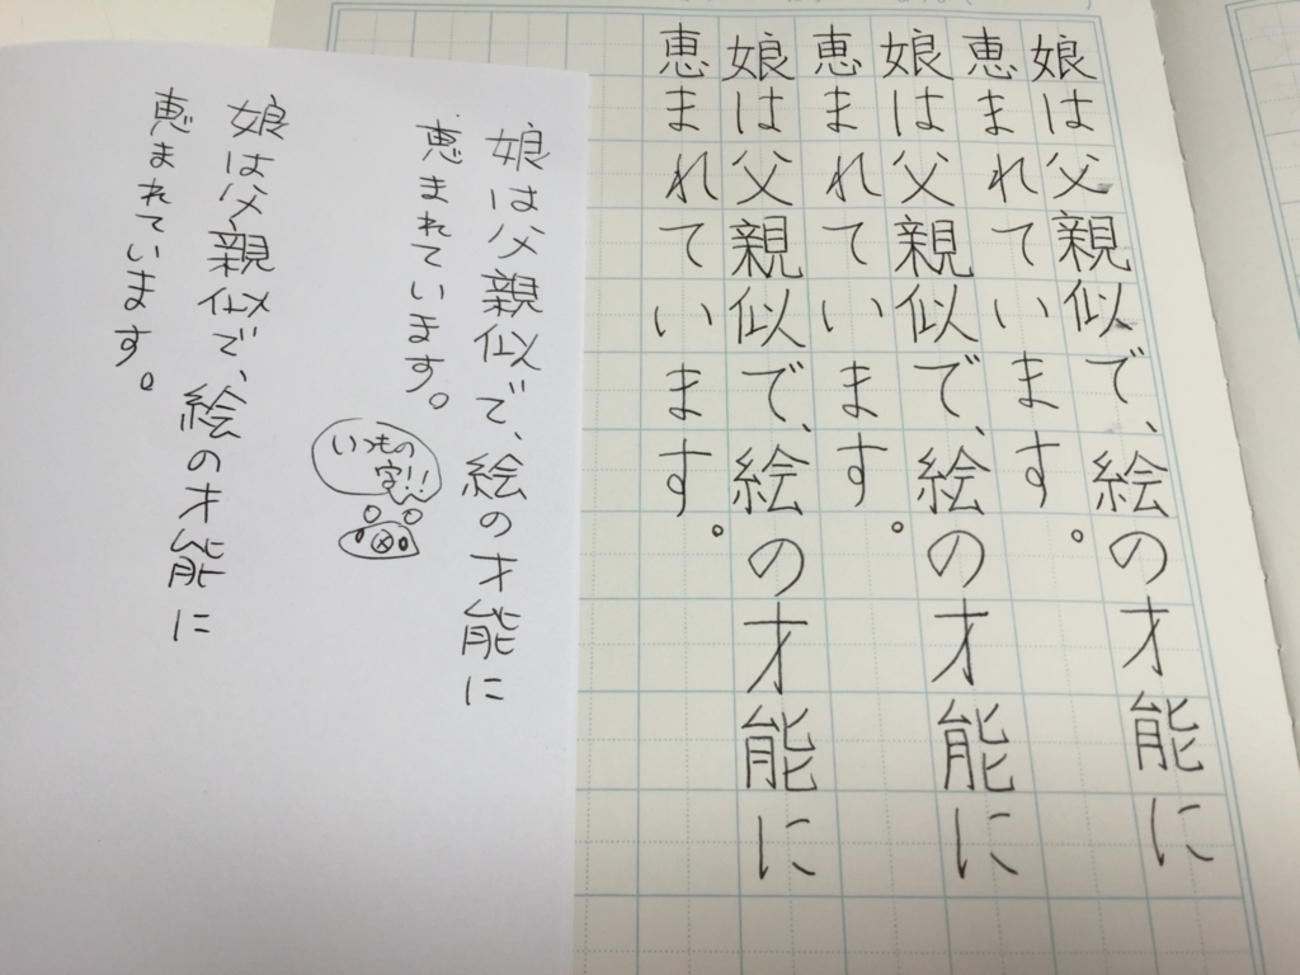 娘は父親似で、絵の才能に
恵まれています。
娘は父親似で、絵の才能に
恵まれています。
娘は父親似で、絵の才能に
恵まれています。
娘は父親似で、絵の才能に
恵まれています。
いつもの
字!!
娘は父親似で、絵の才能に
恵まれています。